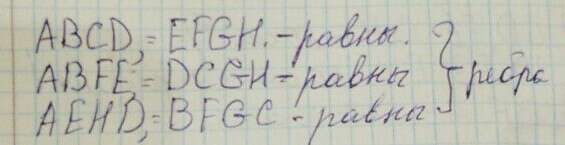 ABCD, = EFGH. - равны.
ABFE, = DCGH - равны } ребра
AEHD, = BFGC - равны